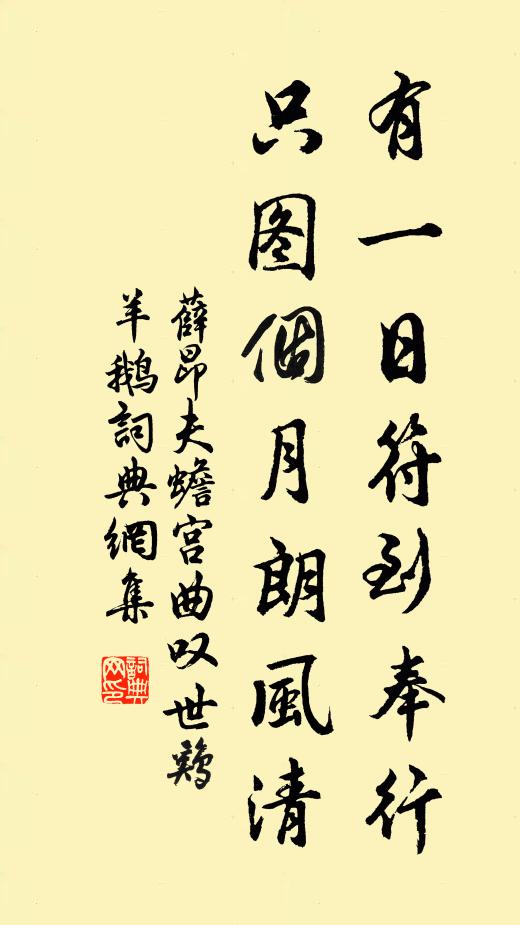 有一日符到奉行
只图個月朗風清
薛昂夫蟾宫曲叹世鷄
羊鵝詞典網集
詞典网印